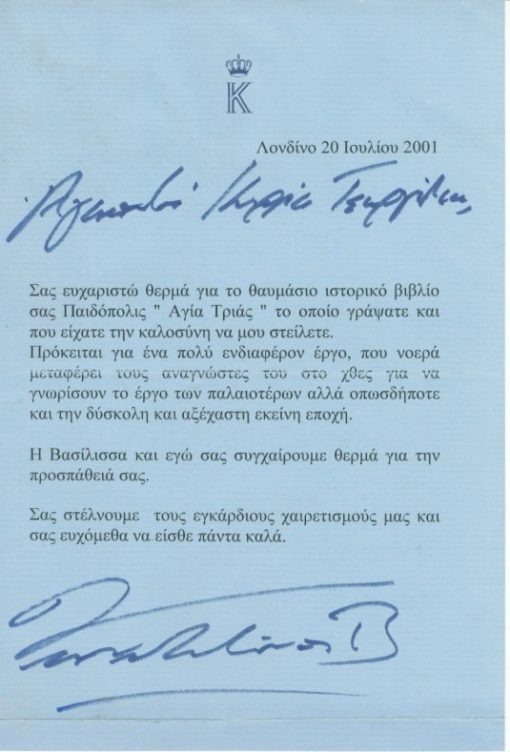 K
Λονδίνο 20 Ιουλίου 2001
Αγαπητέ Κύριε
Σας ευχαριστώ θερμά για το θαυμάσιο ιστορικό βιβλίο
σας Παιδόπολις " Αγία Τριάς " το οποίο γράψατε και
που είχατε την καλοσύνη να μου στείλετε.
Πρόκειται για ένα πολύ ενδιαφέρον έργο, που νοερά
μεταφέρει τους αναγνώστες του στο χθες για να
γνωρίσουν το έργο των παλαιοτέρων αλλά οπωσδήποτε
και την δύσκολη και αξέχαστη εκείνη εποχή.
Η Βασίλισσα και εγώ σας συγχαίρουμε θερμά για την
προσπάθειά σας.
Σας στέλνουμε τους εγκάρδιους χαιρετισμούς μας και
σας ευχόμεθα να είσθε πάντα καλά.